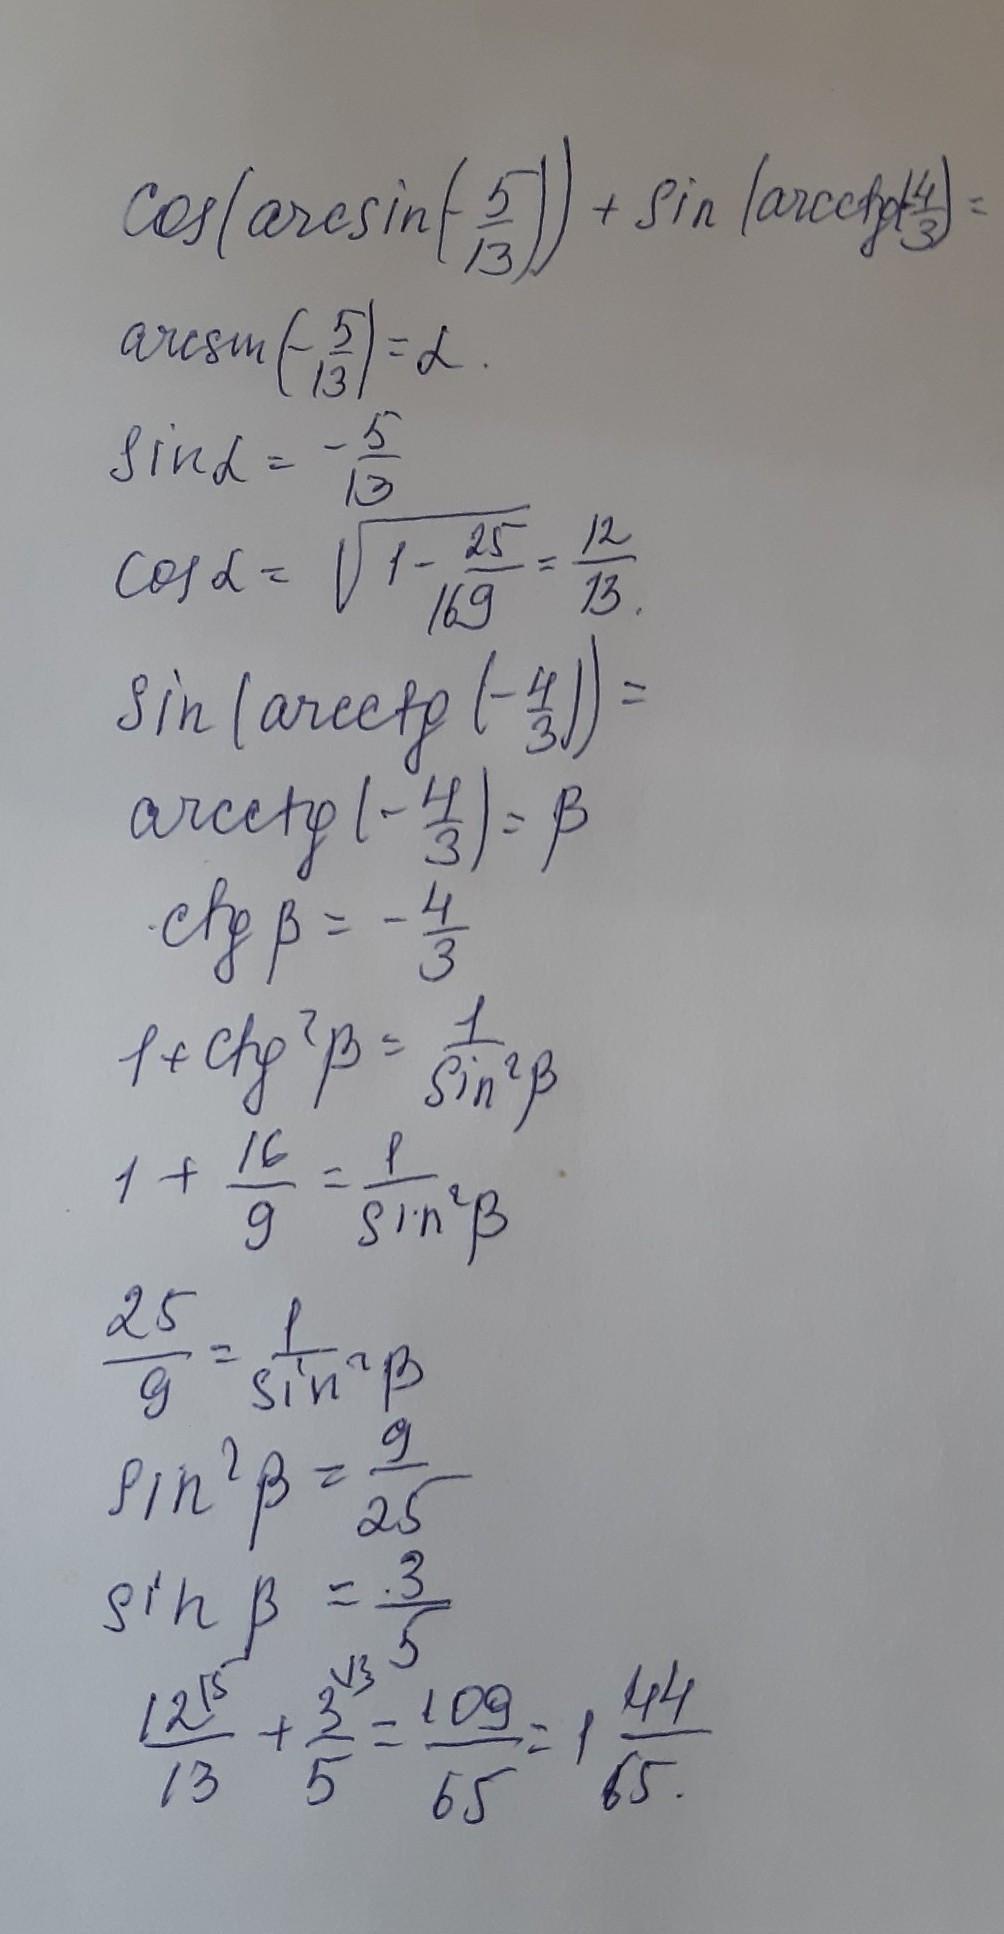 cos(arcsin(-5/13)) + sin(arcctg(-4/3)) =
arcsin(-5/13) = α.
sin α = -5/13
cos α = √(1 - 25/169) = 12/13.
sin(arcctg(-4/3)) =
arcctg(-4/3) = β
ctg β = -4/3
1 + ctg²β = 1/sin²β
1 + 16/9 = 1/sin²β
25/9 = 1/sin²β
sin²β = 9/25
sin β = 3/5
12^5/13 + 3^13/5 = 109/65 = 1 44/65.